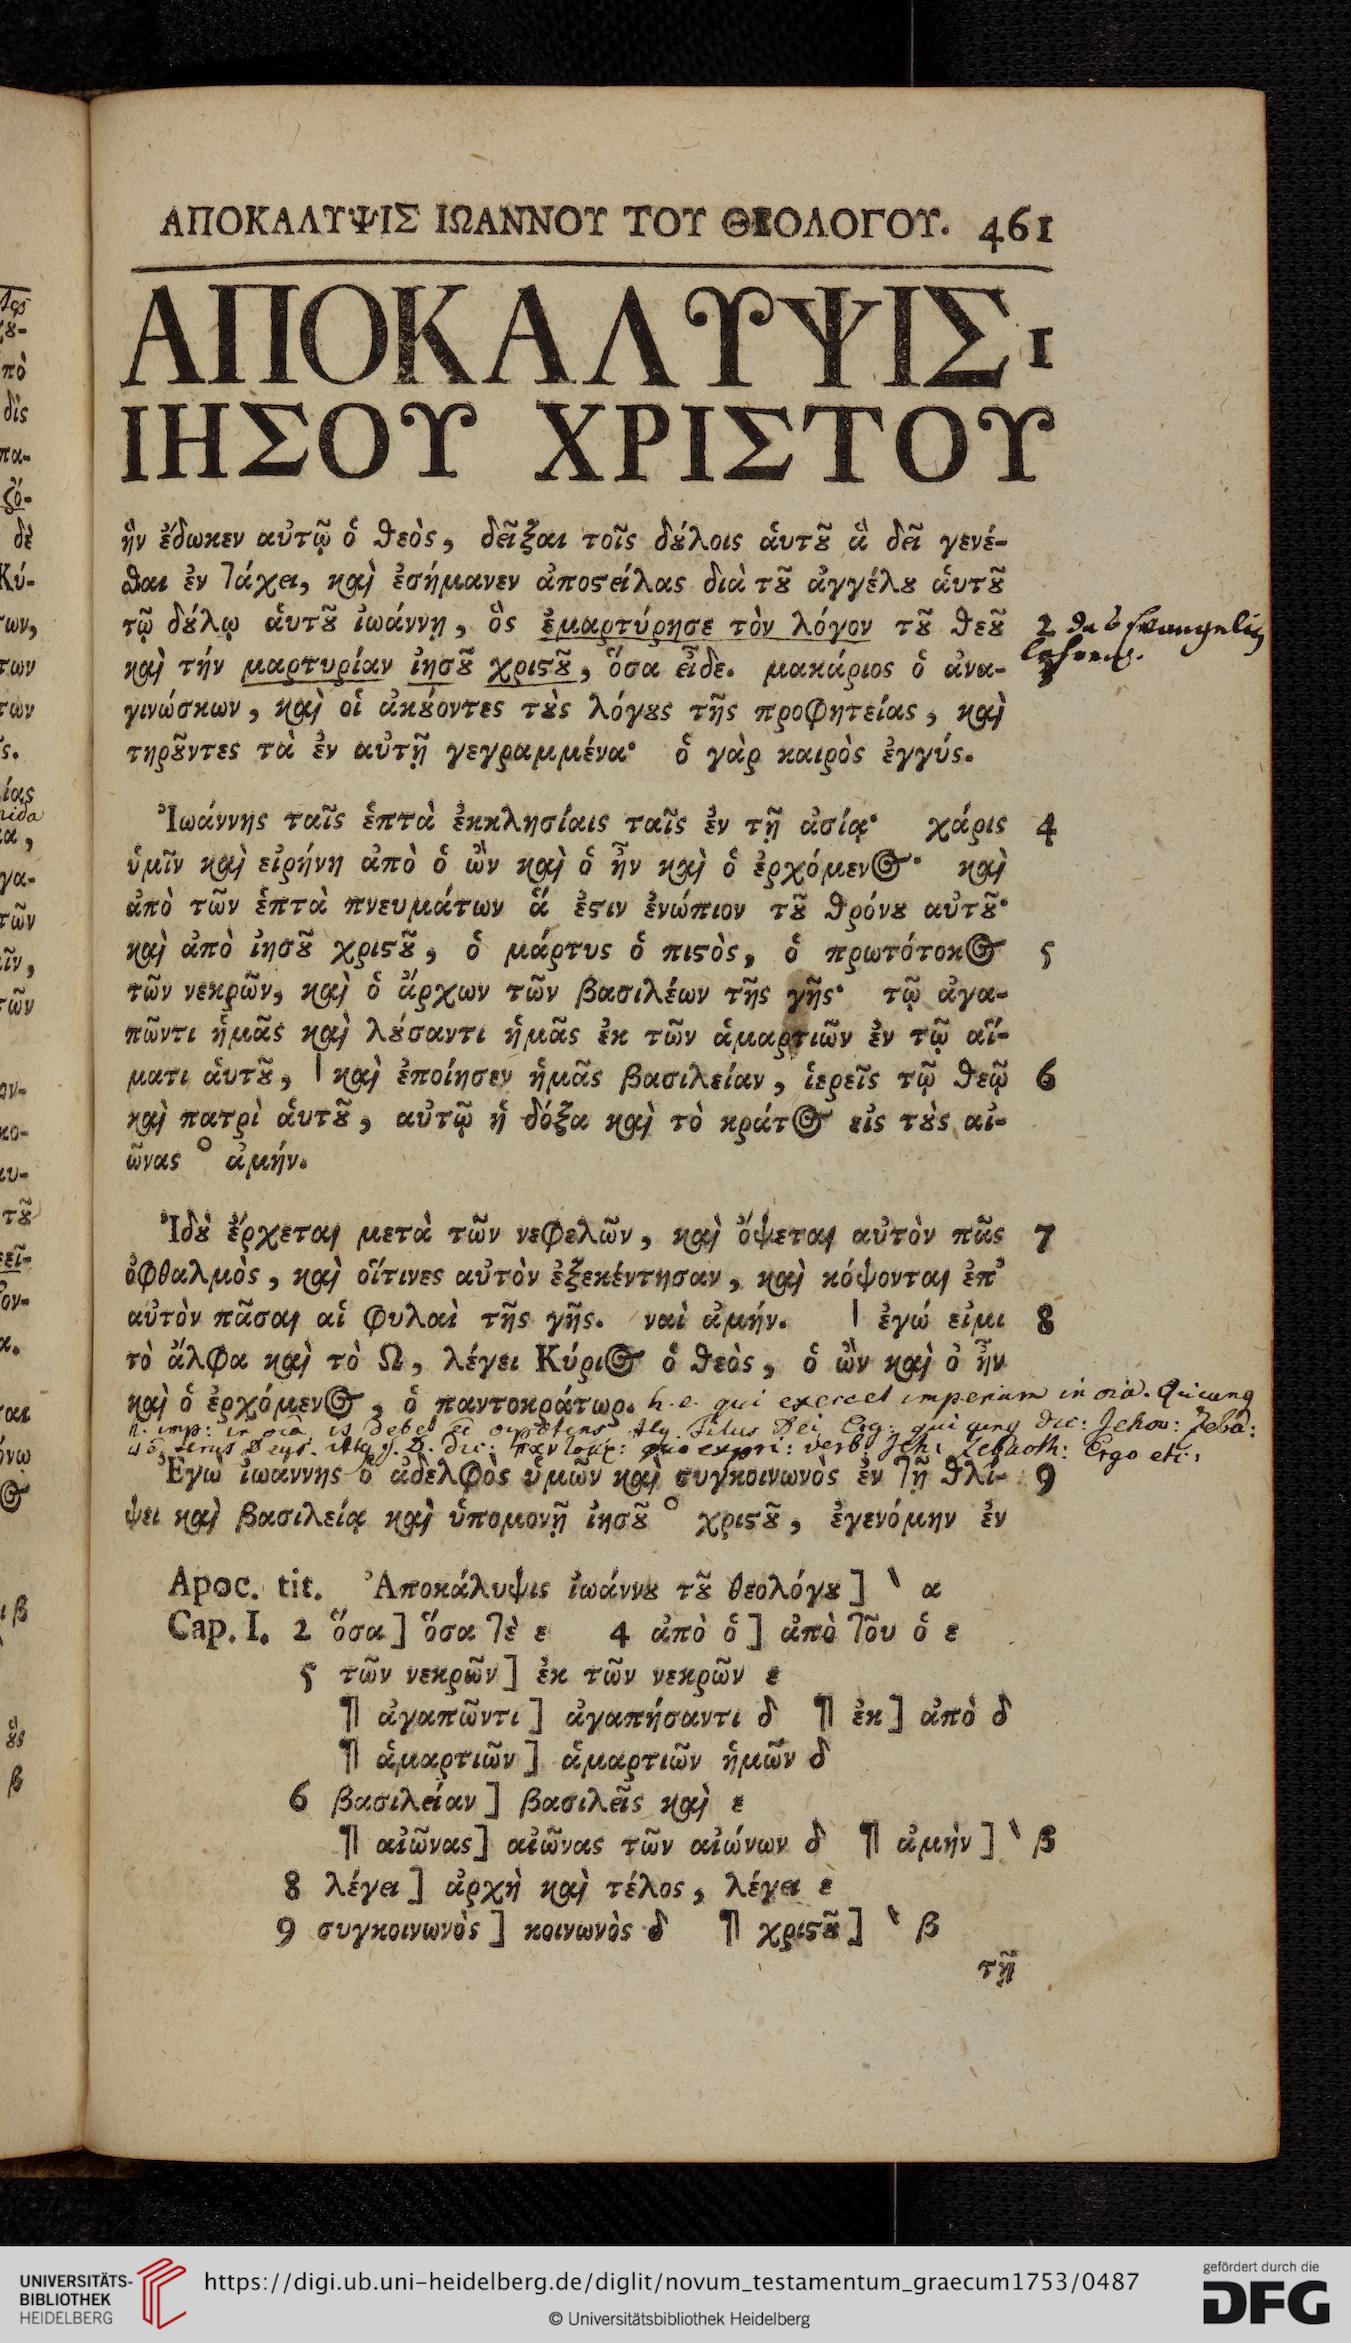 ΑΠΟΚΑΛΥΨΙΣ ΙΩΑΝΝΟΥ ΤΟΥ ΘΕΟΛΟΓΟΥ. 461
ΑΠΟΚΑΛΥΨΙΣ 1
ΙΗΣΟΥ ΧΡΙΣΤΟΥ
ἣν ἔδωκεν αὐτῷ ὁ ϑεὸς, δεῖξαι τοῖς δȣ́λοις ἁυτȣ͂ ἃ δεῖ γενέ-
ϑαι ἐν τάχει, καὶ ἐσήμανεν ἀποϛείλας διὰ τȣ͂ ἀγγέλȣ ἁυτȣ͂
τῷ δȣ́λῳ ἁυτȣ͂ ἰωάννῃ, ὃς ἐμαρτύρησε τὸν λόγον τȣ͂ ϑεȣ͂ 2 das Evangeliū
καὶ τήν μαρτυρίαν ἰησȣ͂ χριϛȣ͂, ὅσα εἶδε. μακάριος ὁ ἀνα- 3
γινώσκων, καὶ οἱ ἀκȣ́οντες τȣ̀ς λόγȣς τῆς προφητείας, καὶ
τηρȣ͂ντες τὰ ἐν αὐτῇ γεγραμμένα· ὁ γὰρ καιρὸς ἐγγύς.
Ἰωάννης ταῖς ἑπτὰ ἐκκλησίαις ταῖς ἐν τῇ ἀσίᾳ· χάρις 4
ὑμῖν καὶ εἰρήνη ἀπὸ ὁ ὢν καὶ ὁ ἦν καὶ ὁ ἐρχόμενος· καὶ
ἀπὸ τῶν ἑπτὰ πνευμάτων ἅ ἐϛιν ἐνώπιον τȣ͂ ϑρόνȣ αὐτȣ͂·
καὶ ἀπὸ ἰησȣ͂ χριϛȣ͂, ὁ μάρτυς ὁ πιϛὸς, ὁ πρωτότοκος 5
τῶν νεκρῶν, καὶ ὁ ἄρχων τῶν βασιλέων τῆς γῆς· τῷ ἀγα-
πῶντι ἡμᾶς καὶ λȣ́σαντι ἡμᾶς ἐκ τῶν ἁμαρτιῶν ἐν τῷ αἵ-
ματι ἁυτȣ͂, | καὶ ἐποίησεν ἡμᾶς βασιλείαν, ἱερεῖς τῷ ϑεῷ 6
καὶ πατρὶ ἁυτȣ͂, αὐτῷ ἡ δόξα καὶ τὸ κράτος εἰς τȣ̀ς αἰ-
ῶνας ° ἀμήν.
Ἰδȣ̀ ἔρχεται μετὰ τῶν νεφελῶν, καὶ ὄψεται αὐτὸν πᾶς 7
ὀφθαλμὸς, καὶ οἵτινες αὐτὸν ἐξεκέντησαν, καὶ κόψονται ἐπ᾽
αὐτὸν πᾶσαι αἱ φυλαὶ τῆς γῆς. ναὶ ἀμήν. | ἐγώ εἰμι 8
τὸ ἄλφα καὶ τὸ Ω, λέγει Κύριος ὁ ϑεὸς, ὁ ὢν καὶ ὁ ἦν
καὶ ὁ ἐρχόμενος, ὁ παντοκράτωρ. h. e. qui exercet imperium in oiā.
Ἐγὼ ἰωαννης ὁ ἀδελφὸς ὑμῶν καὶ συγκοινωνὸς ἐν τῇ ϑλί- 9
ψει καὶ βασιλείᾳ καὶ ὑπομονῇ ἰησȣ͂ ° χριϛȣ͂, ἐγενόμην ἐν
Apoc. tit. Ἀποκάλυψις ἰωάννȣ τȣ͂ θεολόγȣ] ‵ α
Cap. I. 2 ὅσα] ὅσα τὲ ε 4 ἀπὸ ὁ] ἀπὸ τοῦ ὁ ε
5 τῶν νεκρῶν] ἐκ τῶν νεκρῶν ε
¶ ἀγαπῶντι] ἀγαπήσαντι δ ¶ ἐκ] ἀπὸ δ
¶ ἁμαρτιῶν] ἁμαρτιῶν ἡμῶν δ
6 βασιλείαν] βασιλεῖς καὶ ε
¶ αἰῶνας] αἰῶνας τῶν αἰώνων δ ¶ ἀμὴν] ‵ β
8 λέγει] ἀρχὴ καὶ τέλος, λέγει ε
9 συγκοινωνὸς] κοινωνὸς δ ¶ χριϛȣ͂] ‵ β
τῇ
UNIVERSITÄTS-
BIBLIOTHEK
HEIDELBERG
https://digi.ub.uni-heidelberg.de/diglit/novum_testamentum_graecum1753/0487
© Universitätsbibliothek Heidelberg
gefördert durch die
DFG